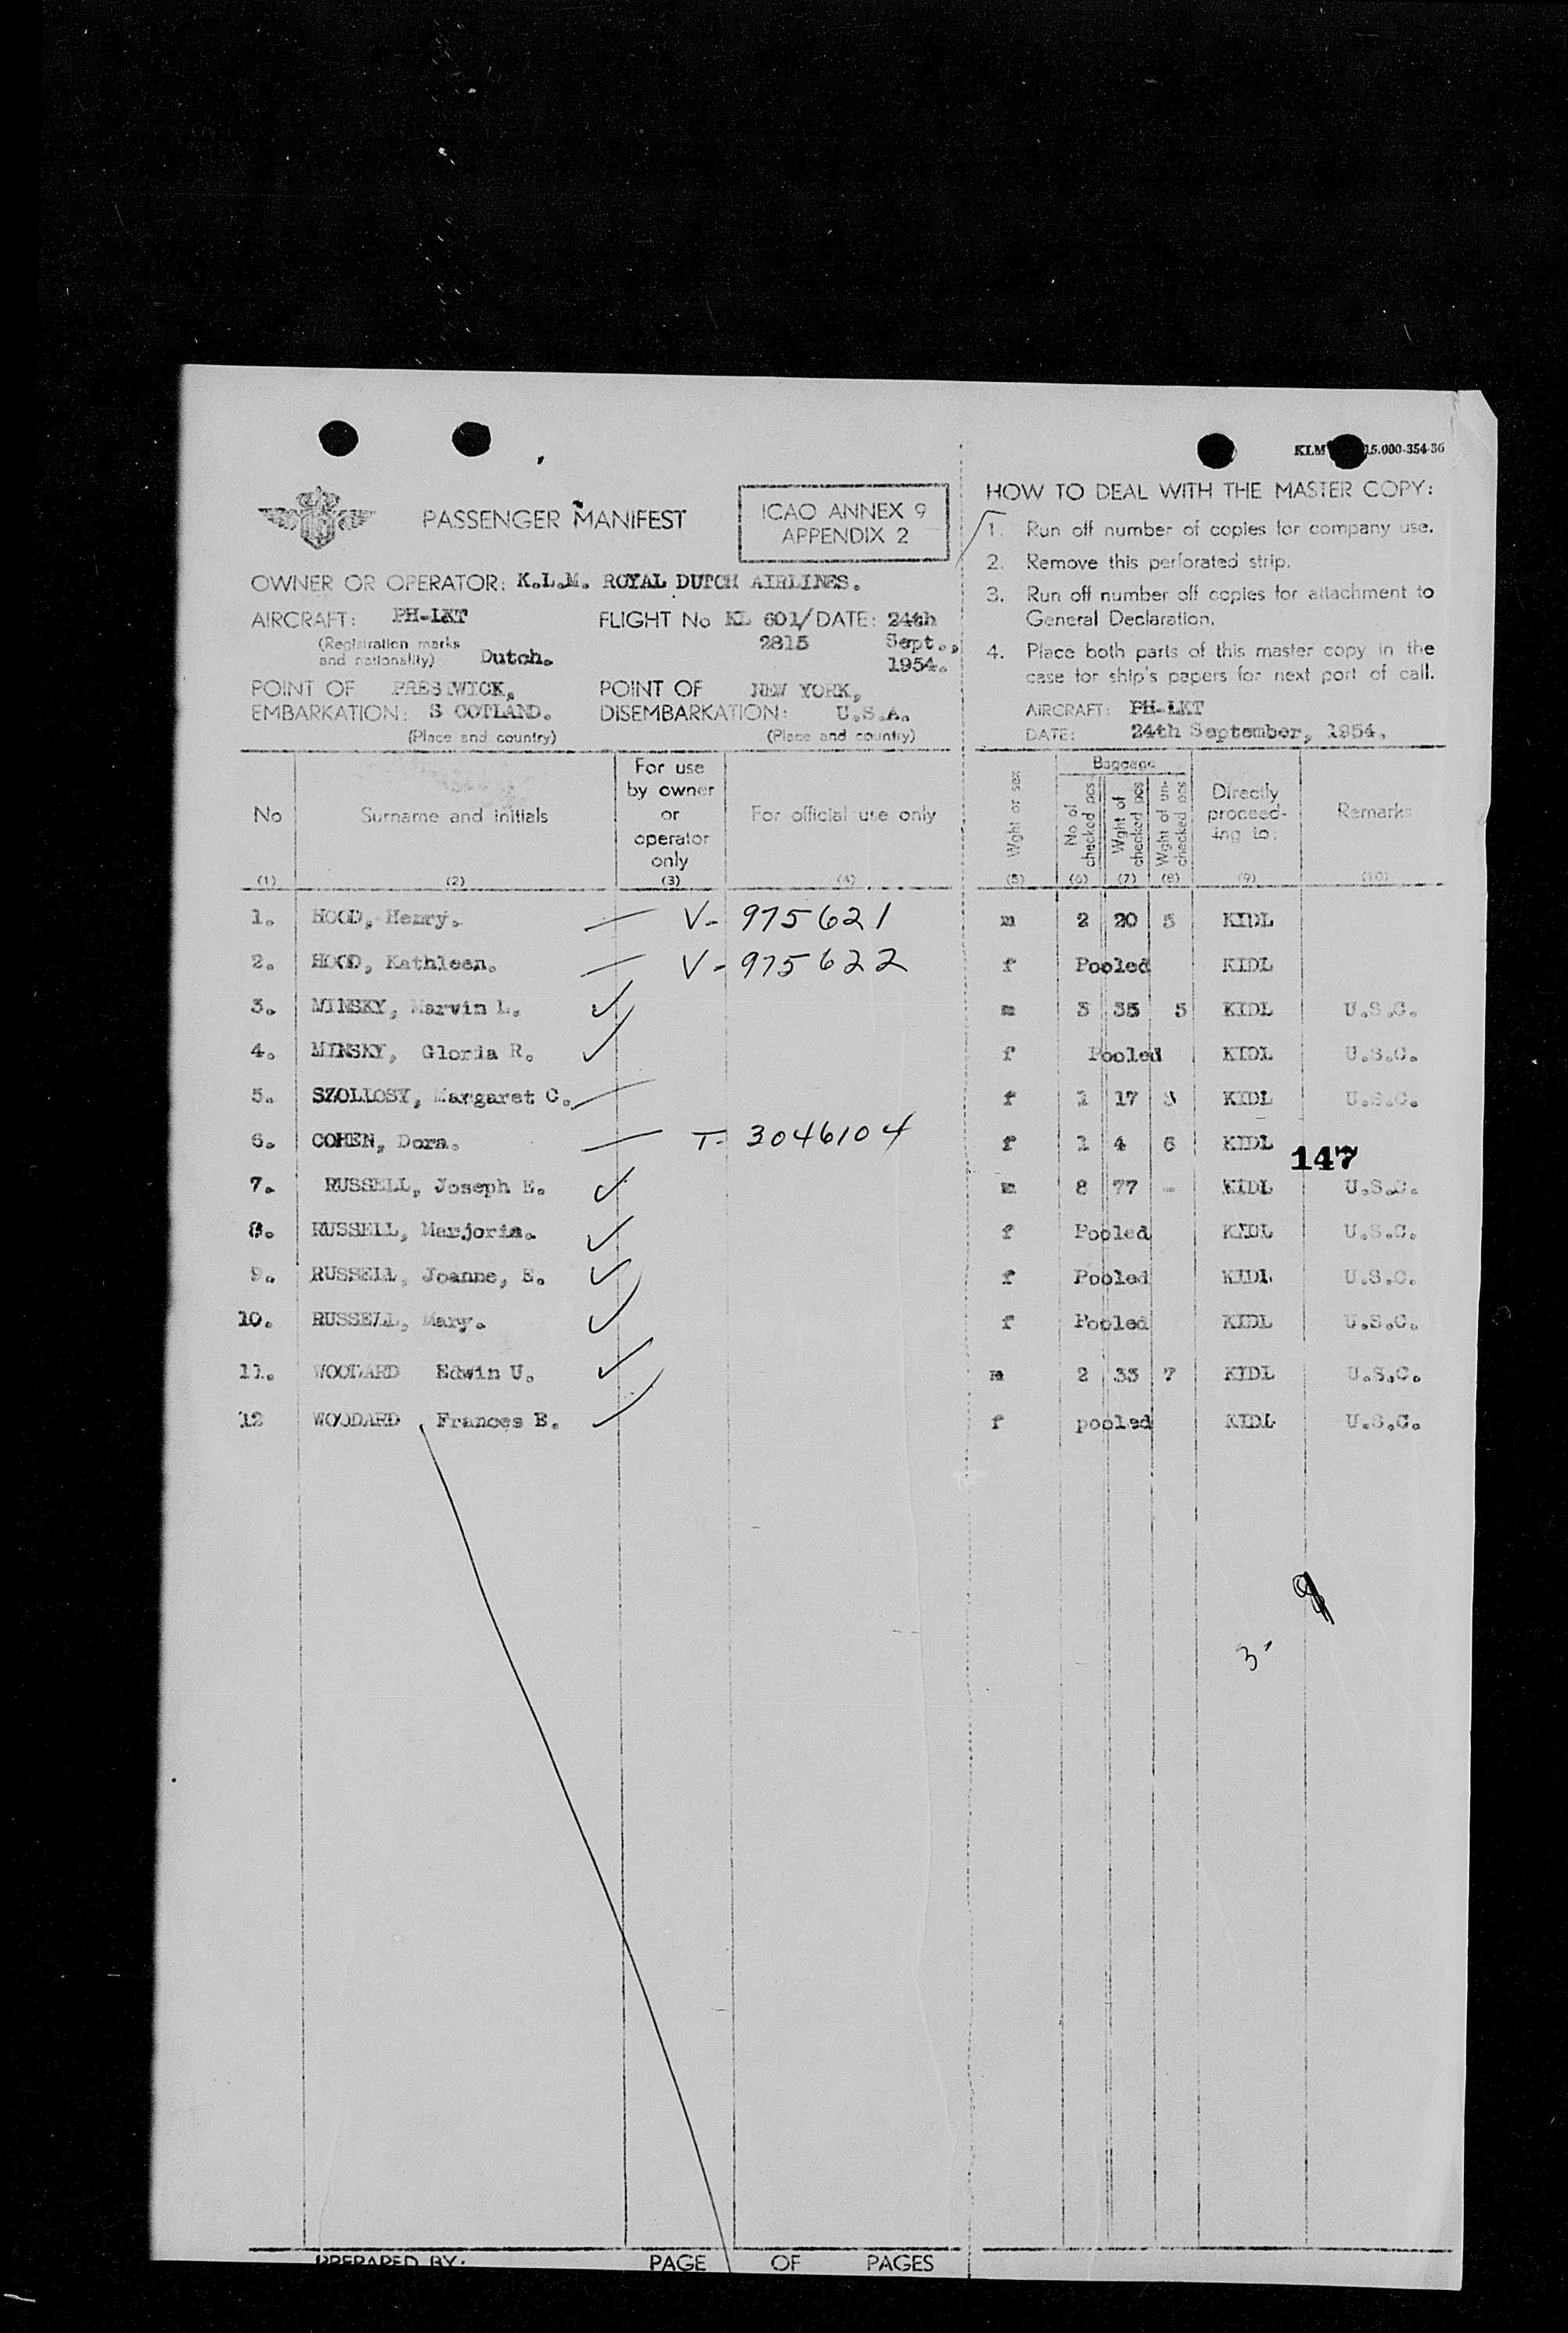 KLM 15.000-354-36
PASSENGER MANIFEST
ICAO ANNEX 9
APPENDIX 2
OWNER OR OPERATOR: K.L.M. ROYAL DUTCH AIRLINES.
AIRCRAFT: PH-LKT FLIGHT No KL 601/ DATE: 24th
(Registration marks 2815 Sept.,
and nationality) Dutch. 1954.
POINT OF PRESTWICK, POINT OF NEW YORK,
EMBARKATION: S COTLAND. DISEMBARKATION: U.S.A.
(Place and country) (Place and country)
HOW TO DEAL WITH THE MASTER COPY:
1. Run off number of copies for company use.
2. Remove this perforated strip.
3. Run off number off copies for attachment to
General Declaration.
4. Place both parts of this master copy in the
case for ship's papers for next port of call.
AIRCRAFT: PH-LKT
DATE: 24th September, 1954.
No Surname and initials For use by owner or operator only For official use only Wght or sex Baggage No of checked pcs Wght of checked pcs Wght of un-checked pcs Directly proceed-ing to: Remarks
(1) (2) (3) (4) (5) (6) (7) (8) (9) (10)
1. HOOD, Henry. — V- 975621 m 2 20 5 KIDL
2. HOOD, Kathleen. — V- 975622 f Pooled KIDL
3. MINSKY, Marvin L. ✓ m 3 35 5 KIDL U.S.C.
4. MINSKY, Gloria R. ✓ f Pooled KIDL U.S.C.
5. SZOLLOSY, Margaret C. — f 1 17 3 KIDL U.S.C.
6. COHEN, Dora. — T- 3046104 f 1 4 6 KIDL
147
7. RUSSELL, Joseph E. ✓ m 8 77 - KIDL U.S.C.
8. RUSSELL, Marjorie. ✓ f Pooled KIDL U.S.C.
9. RUSSELL, Joanne, E. ✓ f Pooled KIDL U.S.C.
10. RUSSELL, Mary. ✓ f Pooled KIDL U.S.C.
11. WOODARD Edwin U. ✓ m 2 33 7 KIDL U.S.C.
12 WOODARD, Frances E. ✓ f pooled KIDL U.S.C.
9
3
PREPARED BY: PAGE OF PAGES